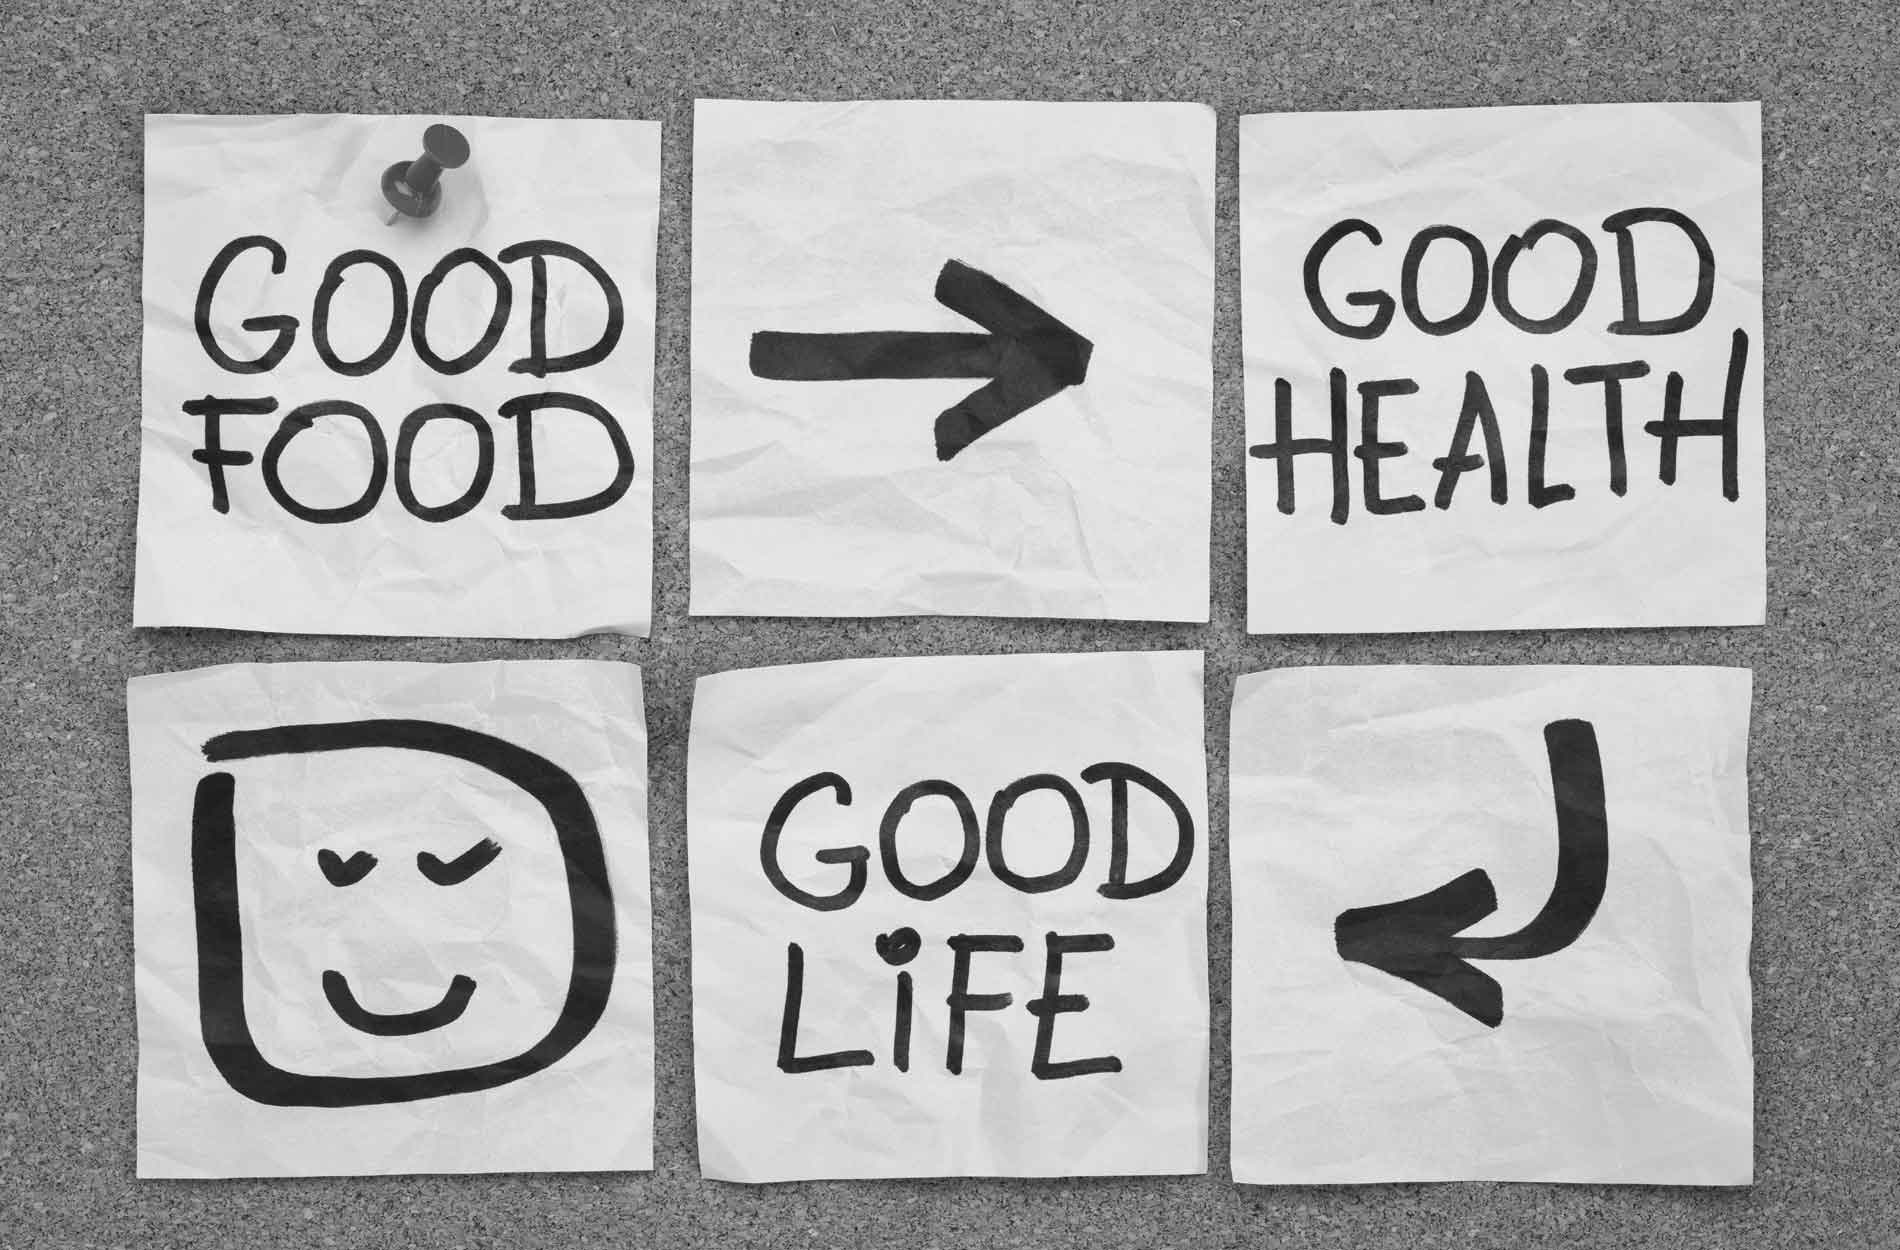 GOOD
FOOD
GOOD
HEALTH
GOOD
LiFE